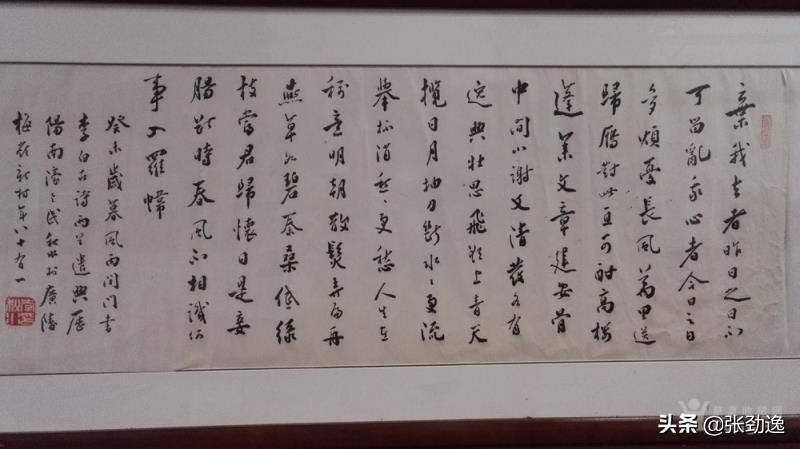 棄我去者昨日之日不
可留亂我心者今日之日
多煩憂長風萬里送
歸雁對此可酣高楼
蓬萊文章建安骨
中间小謝又清發各有
逸興壮思飛欲上青天
攬日月抽刀斷水々更流
舉杯消愁々更愁人生在
稱意明朝散髮弄扁舟
燕草如碧絲秦桑低綠
枝當君歸懷日是妾
腸斷時春風不相識何
事入羅幃
癸未歲暮風雨閉門书
李白古詩两首遣興歷
陽南民秋水於廣陵
梅嶺新村年八十有一
头条 @张劲逸